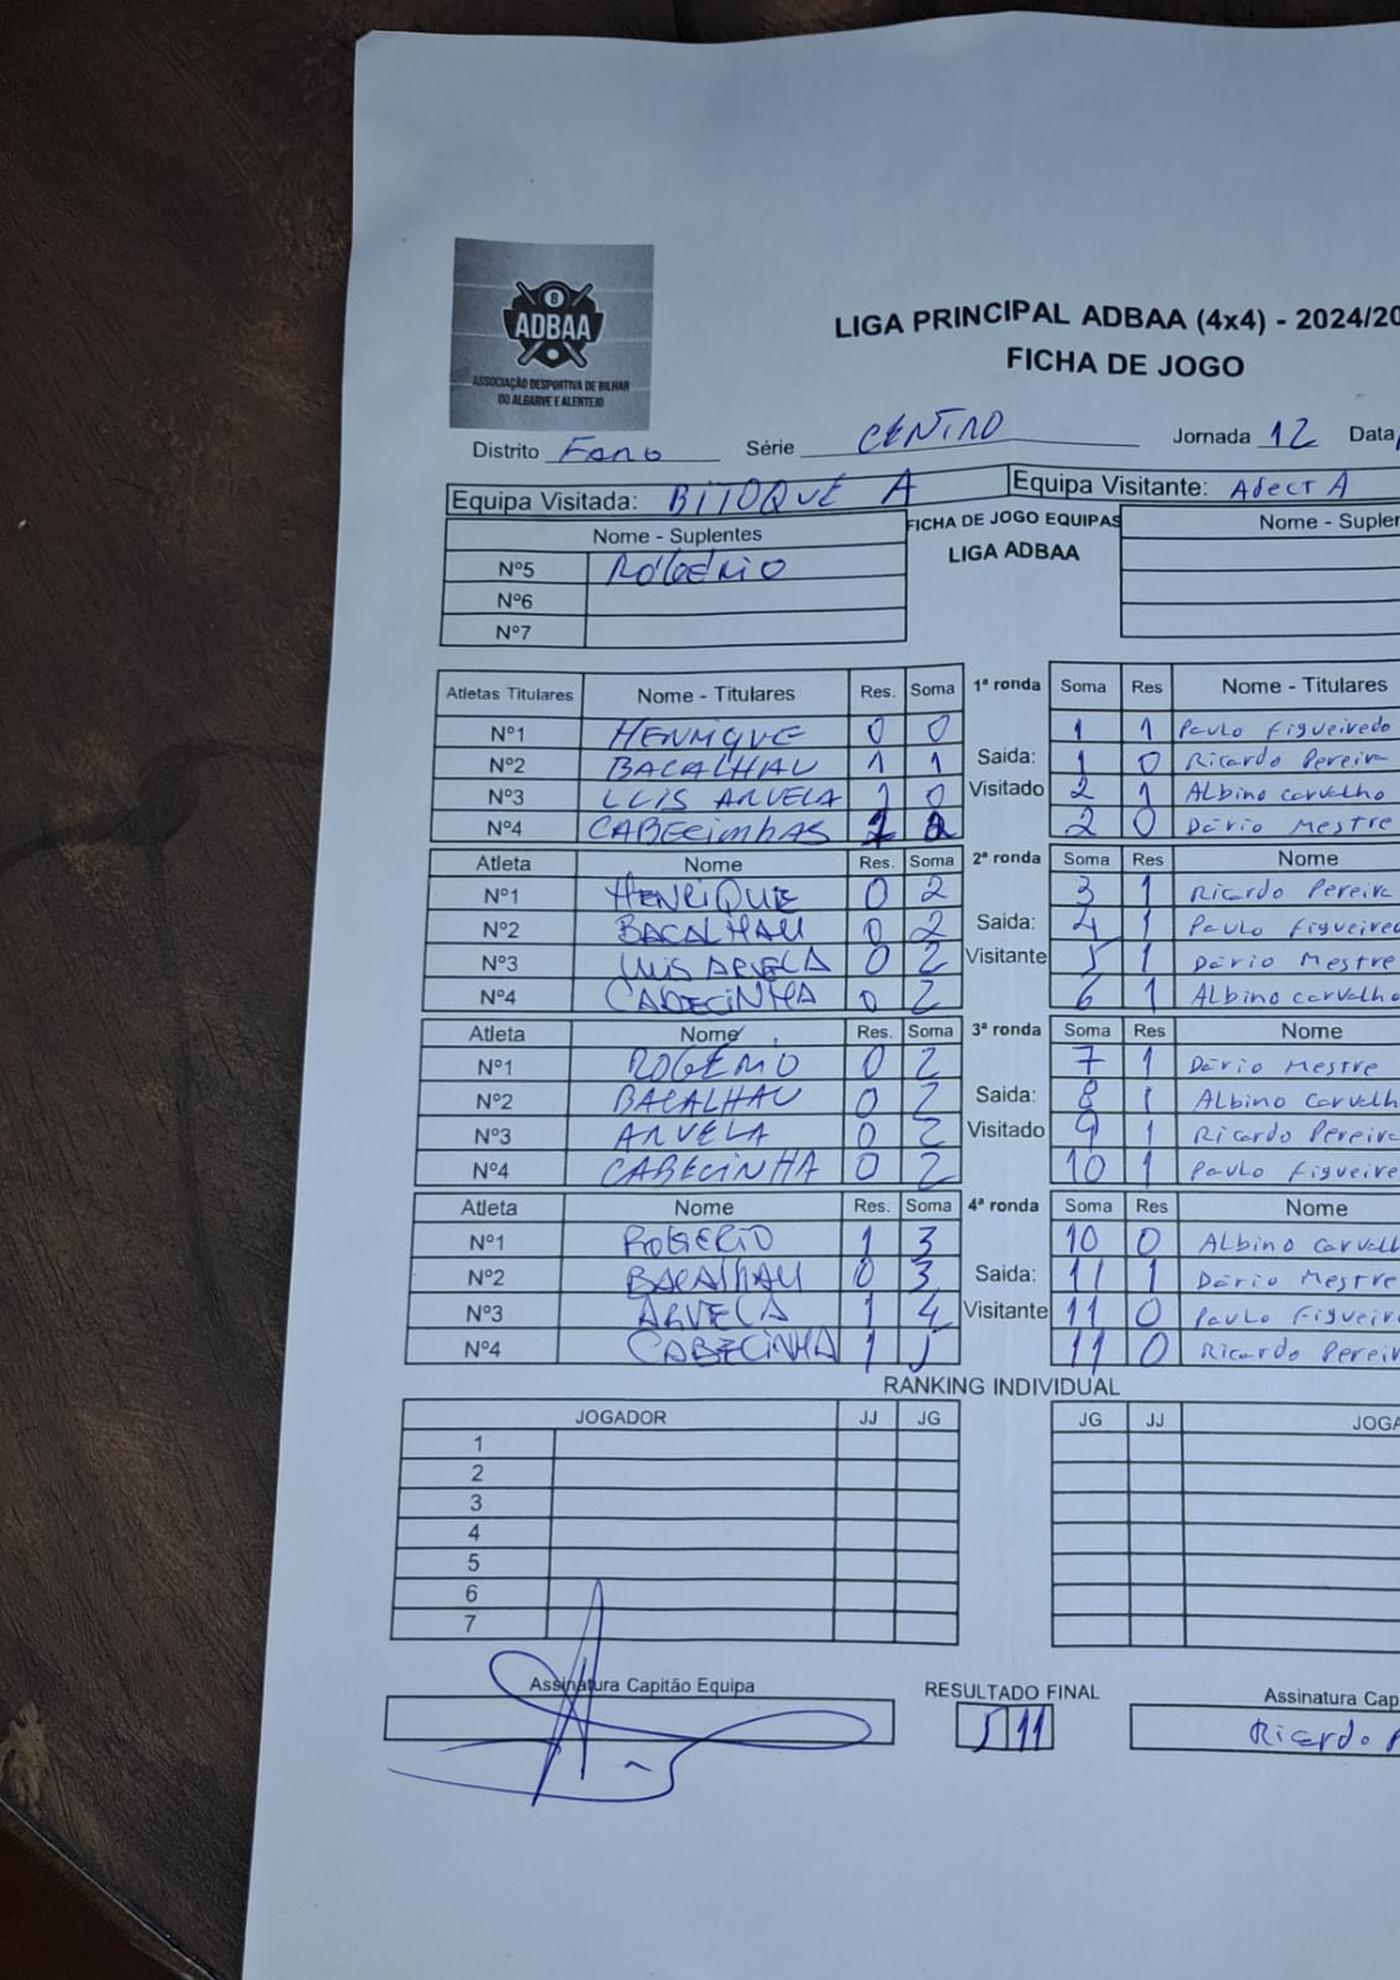 8
ADBAA
ASSOCIAÇÃO DESPORTIVA DE BILHAR
DO ALGARVE E ALENTEJO
LIGA PRINCIPAL ADBAA (4x4) - 2024/20
FICHA DE JOGO
Distrito Faro Série CENTRO Jornada 12 Data
Equipa Visitada: BITOQUE A Equipa Visitante: Adect A
Nome - Suplentes FICHA DE JOGO EQUIPAS Nome - Suplen
LIGA ADBAA
Nº5 ROGÉRIO
Nº6
Nº7
Atletas Titulares Nome - Titulares Res. Soma 1ª ronda Soma Res Nome - Titulares
Nº1 HENRIQUE 0 0 1 1 Paulo Figueiredo
Nº2 BACALHAU 1 1 Saida: 1 0 Ricardo Pereira
Nº3 LUIS ARVELA 0 Visitado 2 1 Albino carvalho
Nº4 CABECinhAS 2 0 Dário Mestre
Atleta Nome Res. Soma 2ª ronda Soma Res Nome
Nº1 HENRIQUE 0 2 3 1 Ricardo Pereira
Nº2 BACALHAU 0 2 Saida: 4 1 Paulo Figueired
Nº3 LUIS ARVELA 0 2 Visitante 5 1 Dário Mestre
Nº4 CABECINHA 0 2 6 1 Albino carvalho
Atleta Nome Res. Soma 3ª ronda Soma Res Nome
Nº1 ROGÉRIO 0 2 7 1 Dário Mestre
Nº2 BACALHAU 0 2 Saida: 8 1 Albino Carvalh
Nº3 ARVELA 0 2 Visitado 9 1 Ricardo Pereira
Nº4 CABECINHA 0 2 10 1 Paulo Figueire
Atleta Nome Res. Soma 4ª ronda Soma Res Nome
Nº1 ROGÉRIO 1 3 10 0 Albino Carvalh
Nº2 BACALHAU 0 3 Saida: 11 1 Dário Mestre
Nº3 ARVELA 1 4 Visitante 11 0 Paulo Figueir
Nº4 CABECINHA 1 5 11 0 Ricardo Pereir
RANKING INDIVIDUAL
JOGADOR JJ JG JG JJ JOGA
1
2
3
4
5
6
7
Assinatura Capitão Equipa RESULTADO FINAL Assinatura Cap
5 11 Ricardo P